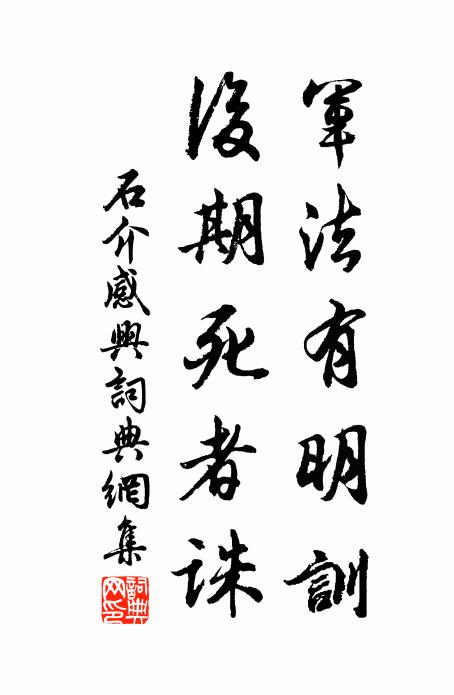 軍法有明訓
後期死者誅
石介感興詞典網集
詞典
网印